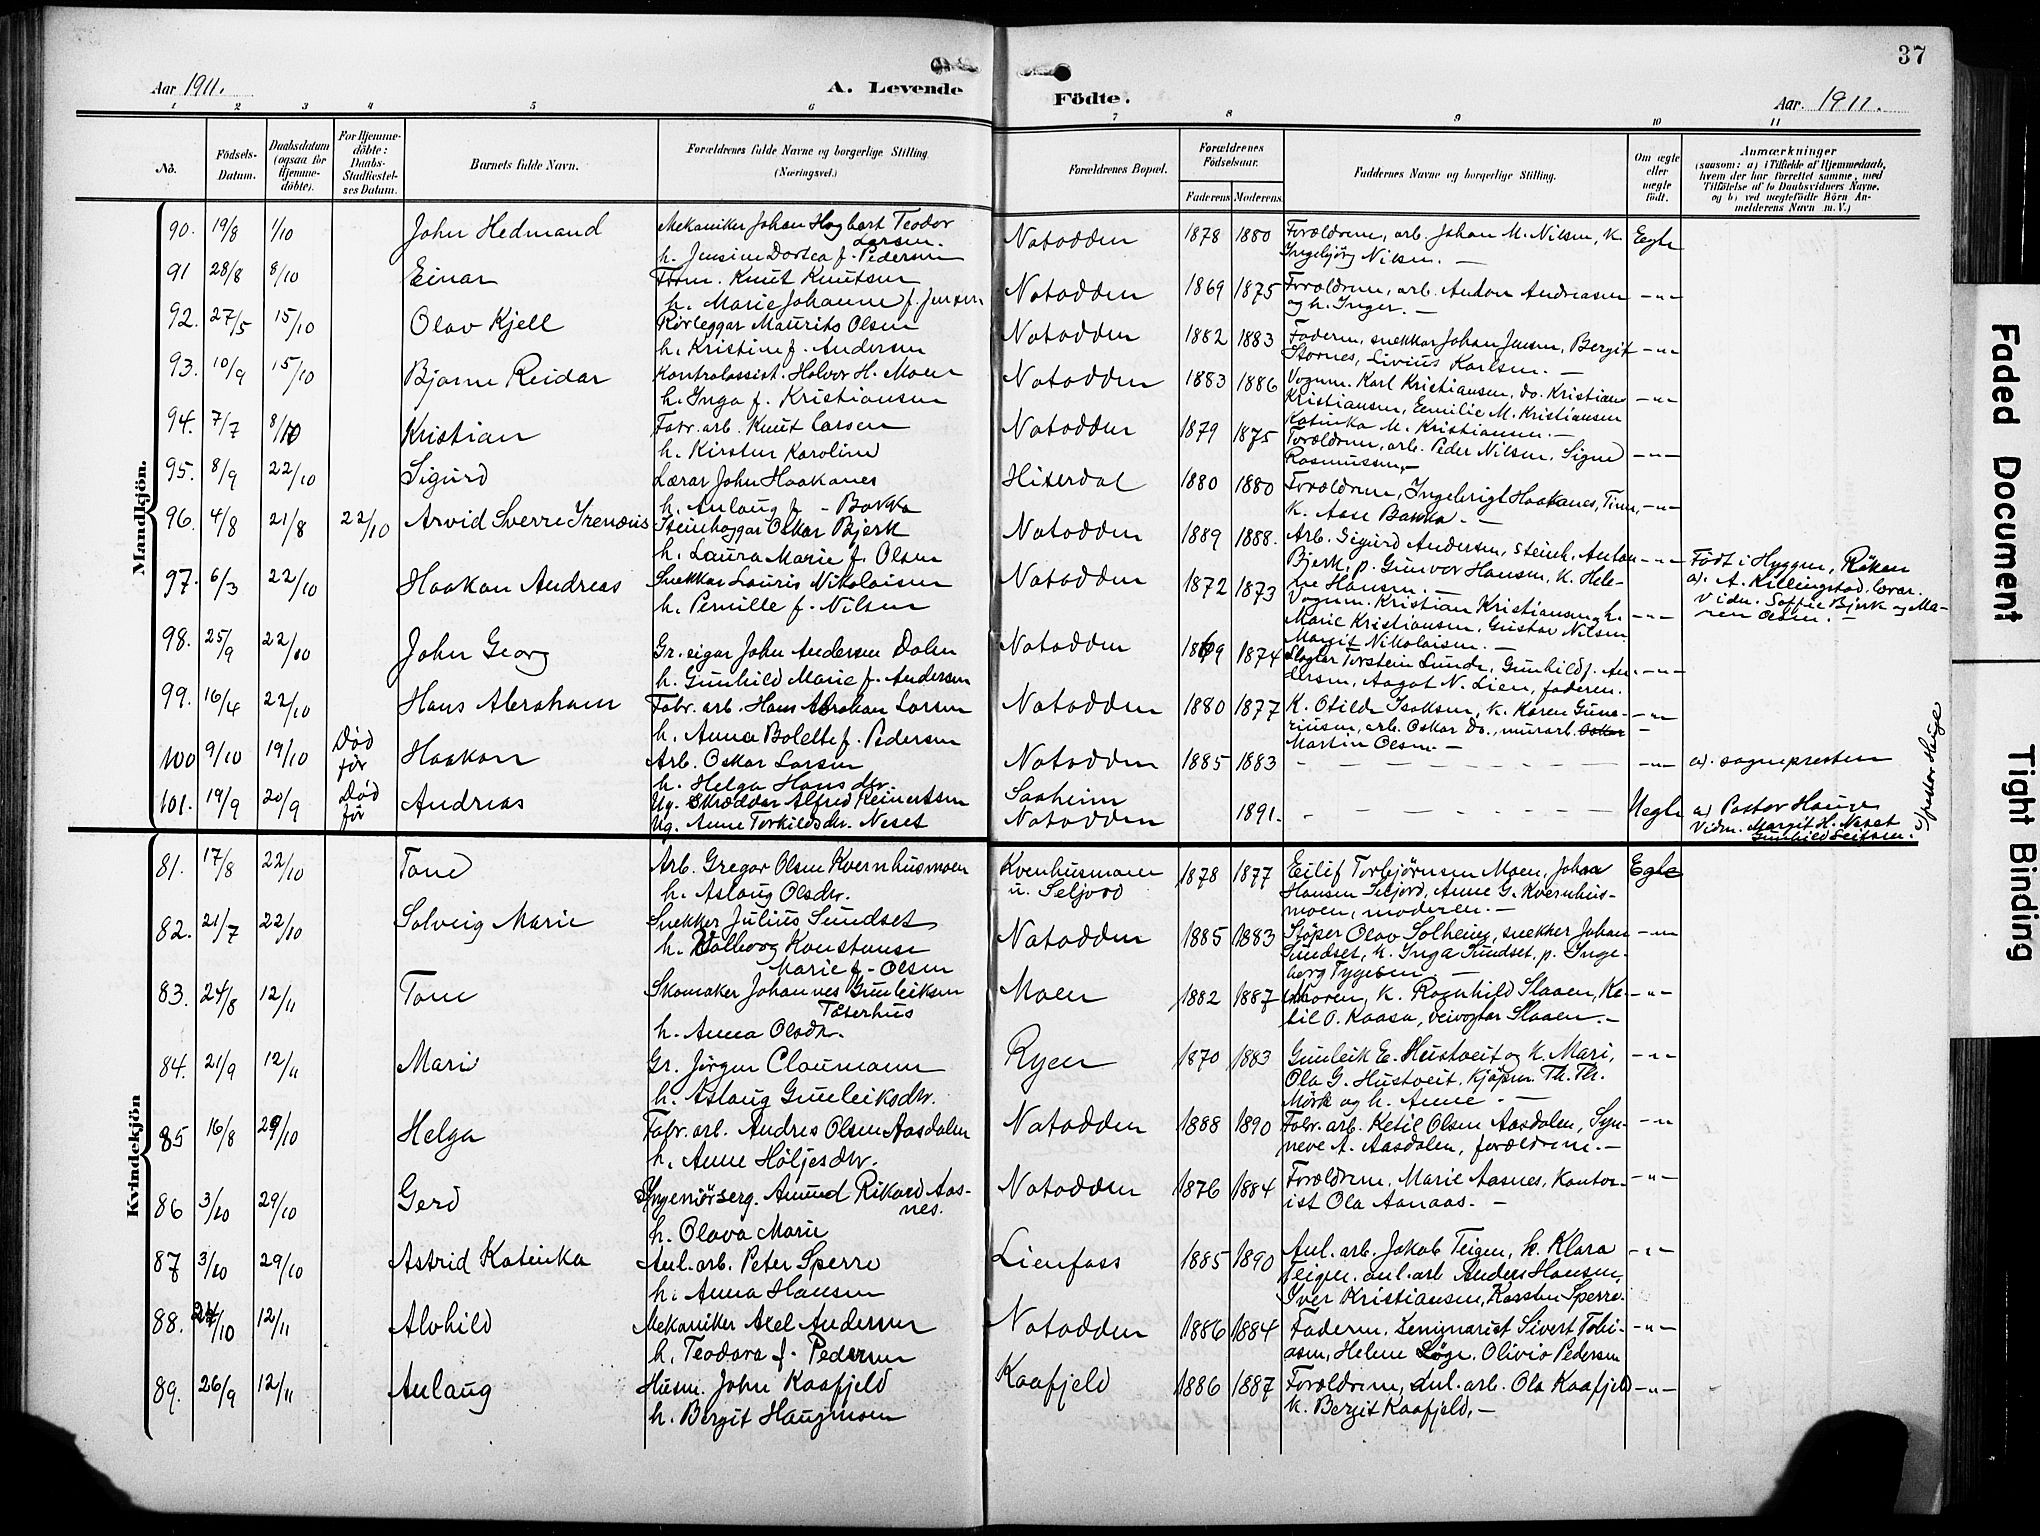 37
Aar 1911.
A. Levende
Födte.
Aar. 1911.
1 2 3 4 5 6 7 8 9 10 11
No.
Födsels-Datum.
Daabsdatum (ogsaa for Hjemme-döbte).
For Hjemme-döbte: Daabs-Stadfæstel-ses Datum.
Barnets fulde Navn.
Forældrenes fulde Navne og borgerlige Stilling (Næringsvei.)
Forældrenes Bopæl.
Forældrenes Födselsaar.
Faderens Moderens
Faddernes Navne og borgerlige Stilling.
Om ægte eller uægte födt.
Anmærkninger
(saasom: a) i Tilfælde af Hjemmedaab, hvem der har forrettet samme, med Tilföielse af to Daabsvidners Navne, og b) ved uægtefödte Börn Anmelderens Navn m. V.)
Mandkjön.
90. 19/8 1/10 John Hedmand Mekaniker Johan Hagbart Teodor Larsen. h. Jensine Dortea f. Pedersen Notodden 1878 1880 Forældrene, arb. Johan M. Nilsen, k. Ingebjörg Nilsen. — Eegte
91 28/8 8/10 Einar Form. Knut Knutsen h. Marie Johanne f. Jensen Notodden 1869 1875 Forældrene, arb. Anton Andreasen og h. Inger. — -"-
92. 27/5 15/10 Olav Kjell Rörleggar Maurits Olsen h. Kristine f. Andersen Notodden 1882 1883 Faderen, snekkar Johan Jensen, Bergit Stornes, Livius Karlsen. — -"-
93. 10/9 15/10 Bjarne Reidar Kontrolassist. Halvor H. Moen h. Inga f. Kristiansen Notodden 1883 1886 Vognm. Karl Kristiansen, do. Kristian Kristiansen, Eemilie M. Kristiansen Katinka M. Kristiansen. — -"-
94. 7/7 8/10 Kristian Fabr. arb. Knut Larsen h. Kirsten Karoline Notodden 1879 1875 Forældrene, arb. Peder Nilsen, Signe Rasmussen. — -"-
95. 8/9 22/10 Sigurd Lærar John Haakanes h. Anlaug f. Bakka Hiterdal 1880 1880 Forældrene, Ingebrigt Haakanes, Tinn, k. Aase Bakka. — -"-
96. 4/8 21/8 22/10 Arvid Sverre Irenæus Steinhoggar Oskar Bjerk h. Laura Marie f. Olsen Notodden 1889 1888. Arb. Sigurd Andersen, steinh. Anton Bjerk, p. Gunvor Hansen, k. Helene Hansen. — -"- Födt i Hyggen, Röken a). A. Killingstad, lærar. Vidn. Soffie Bjerk og Maren Olsen. —
97. 6/3 22/10 Haakon Andreas Snekkar Lauris Nikolaisen h. Pernille f. Nilsen Notodden 1872 1873 Vognm. Kristian Kristiansen, h. Marie Kristiansen, Gustav Nilsen Margit Nikolaisen. — -"-
98. 25/9 22/10 John Georg Gr. eigar John Andersen Dalen h. Gunhild Marie f. Andersen Notodden 1869 1874 Slagtar Torstein Lunde, Gunhild f. Andersen, Aagot N. Lien, faderen. -"-
99. 16/4 22/10 Hans Abraham Fabr. arb. Hans Abraham Larsen h. Anna Bolette f. Pedersen Notodden 1880 1877 K. Otilde Isaksen, k. Karen Gunariusen, arb. Oskar do., murarb. Oskar Martin Olsen. — -"-
100 9/10 19/10 Död för Haakon Arb. Oskar Larsen h. Helga Hansdtr. Notodden 1885 1883 — -"- a). sognepresten
101. 19/9 20/9 Död för Andreas Ug. Skræddar Alfred Reinertsen Ug. Anne Torkildsdtr. Neset Saaheim Notodden 1891. — Uegte a) Pastor Hauge Vidn. Margit H. Neset Gunhild Leifsen.
Kvindekjön
81. 17/8 22/10 Tone Arb. Gregar Olsen Kvernhusmoen h. Aslaug Olsdtr. Kvenhusmoen u. Seljord 1878 1877 Eilif Torbjörnsen Moen, Johan Hansen Seljord, Anne G. Kvernhusmoen, moderen. — Egte
82. 21/7 22/10 Solveig Marie Snekker Julius Sundset h. Valborg Konstanse Marie f. Olsen Notodden 1885 1883 Stöper Olav Solheim, snekker Johan Sundset, k. Inga Sundset, p. Ingeborg Tygesen. — -"-
83. 24/8 12/11 Tone Skomaker Johannes Gunleiksen Täterhus h. Anna Olsdtr. Moen 1882 1887 Moren, K. Ragnhild Slaaen, Ketil O. Kaasa, veivogtar Slaaen. — -"-
84. 21/9 12/11 Mari Gr. Jörgen Claumann h. Aslaug Gunleiksdtr. Ryen 1870 1883 Gunleik E. Hustveit og k. Mari, Ola G. Hustveit, Kjöpm. Th. Th. Mörk og h. Anne. — -"-
85 16/8 29/10 Helga Fabr. arb. Andres Olsen Aasdalen h. Anne Höljesdtr. Notodden 1888 1890 Fabr. arb. Ketil Olsen Aasdalen, Synneve A. Aasdalen, forældrene. — -"-
86 3/10 29/10 Gerd Ingeniörserg. Amund Rikard Aasnes. h. Olava Marie Notodden 1876 1884 Forældrene, Marie Aasnes, Kontorist Ola Aanaas. — -"-
87 3/10 29/10 Astrid Katinka Anl. arb. Peter Sperre h. Anna Hansen Lienfoss 1885 1890 Anl. arb. Jakob Teigen, k. Klara Teigen, anl. arb Anders Hansen, Iver Kristiansen, Karsten Sperre. -"-
88. 24/10 12/11 Alvhild Mekaniker Axel Andersen h. Teodora f. Pedersen Notodden 1886 1884 Faderen, Seminarist Sivert Tobiasen, Helene Löge, Olivia Pedersen -"-
89. 26/9 12/11 Anlaug Husm. John Kaafjeld h. Bergit Haugmoen Kaafjeld 1886 1887 Forældrene, anl. arb. Ola Kaafjeld k. Bergit Kaafjeld. — -"-
Faded Document
Tight Binding